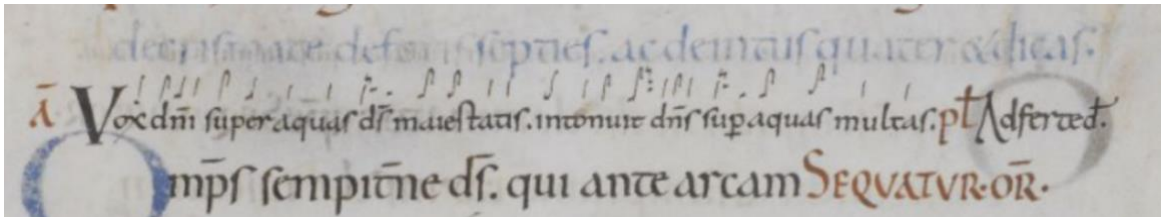 de crismate deforis septies. ac deintus quater & dicas.
Ā Vox dn̄i super aquas d̄s maiestatis. intonuit dn̄s sup̱ aquas multas. pł Adferte d̄.
Omp̄s sempit̄ne d̄s. qui ante arcam SEQVATVR·OR̄·